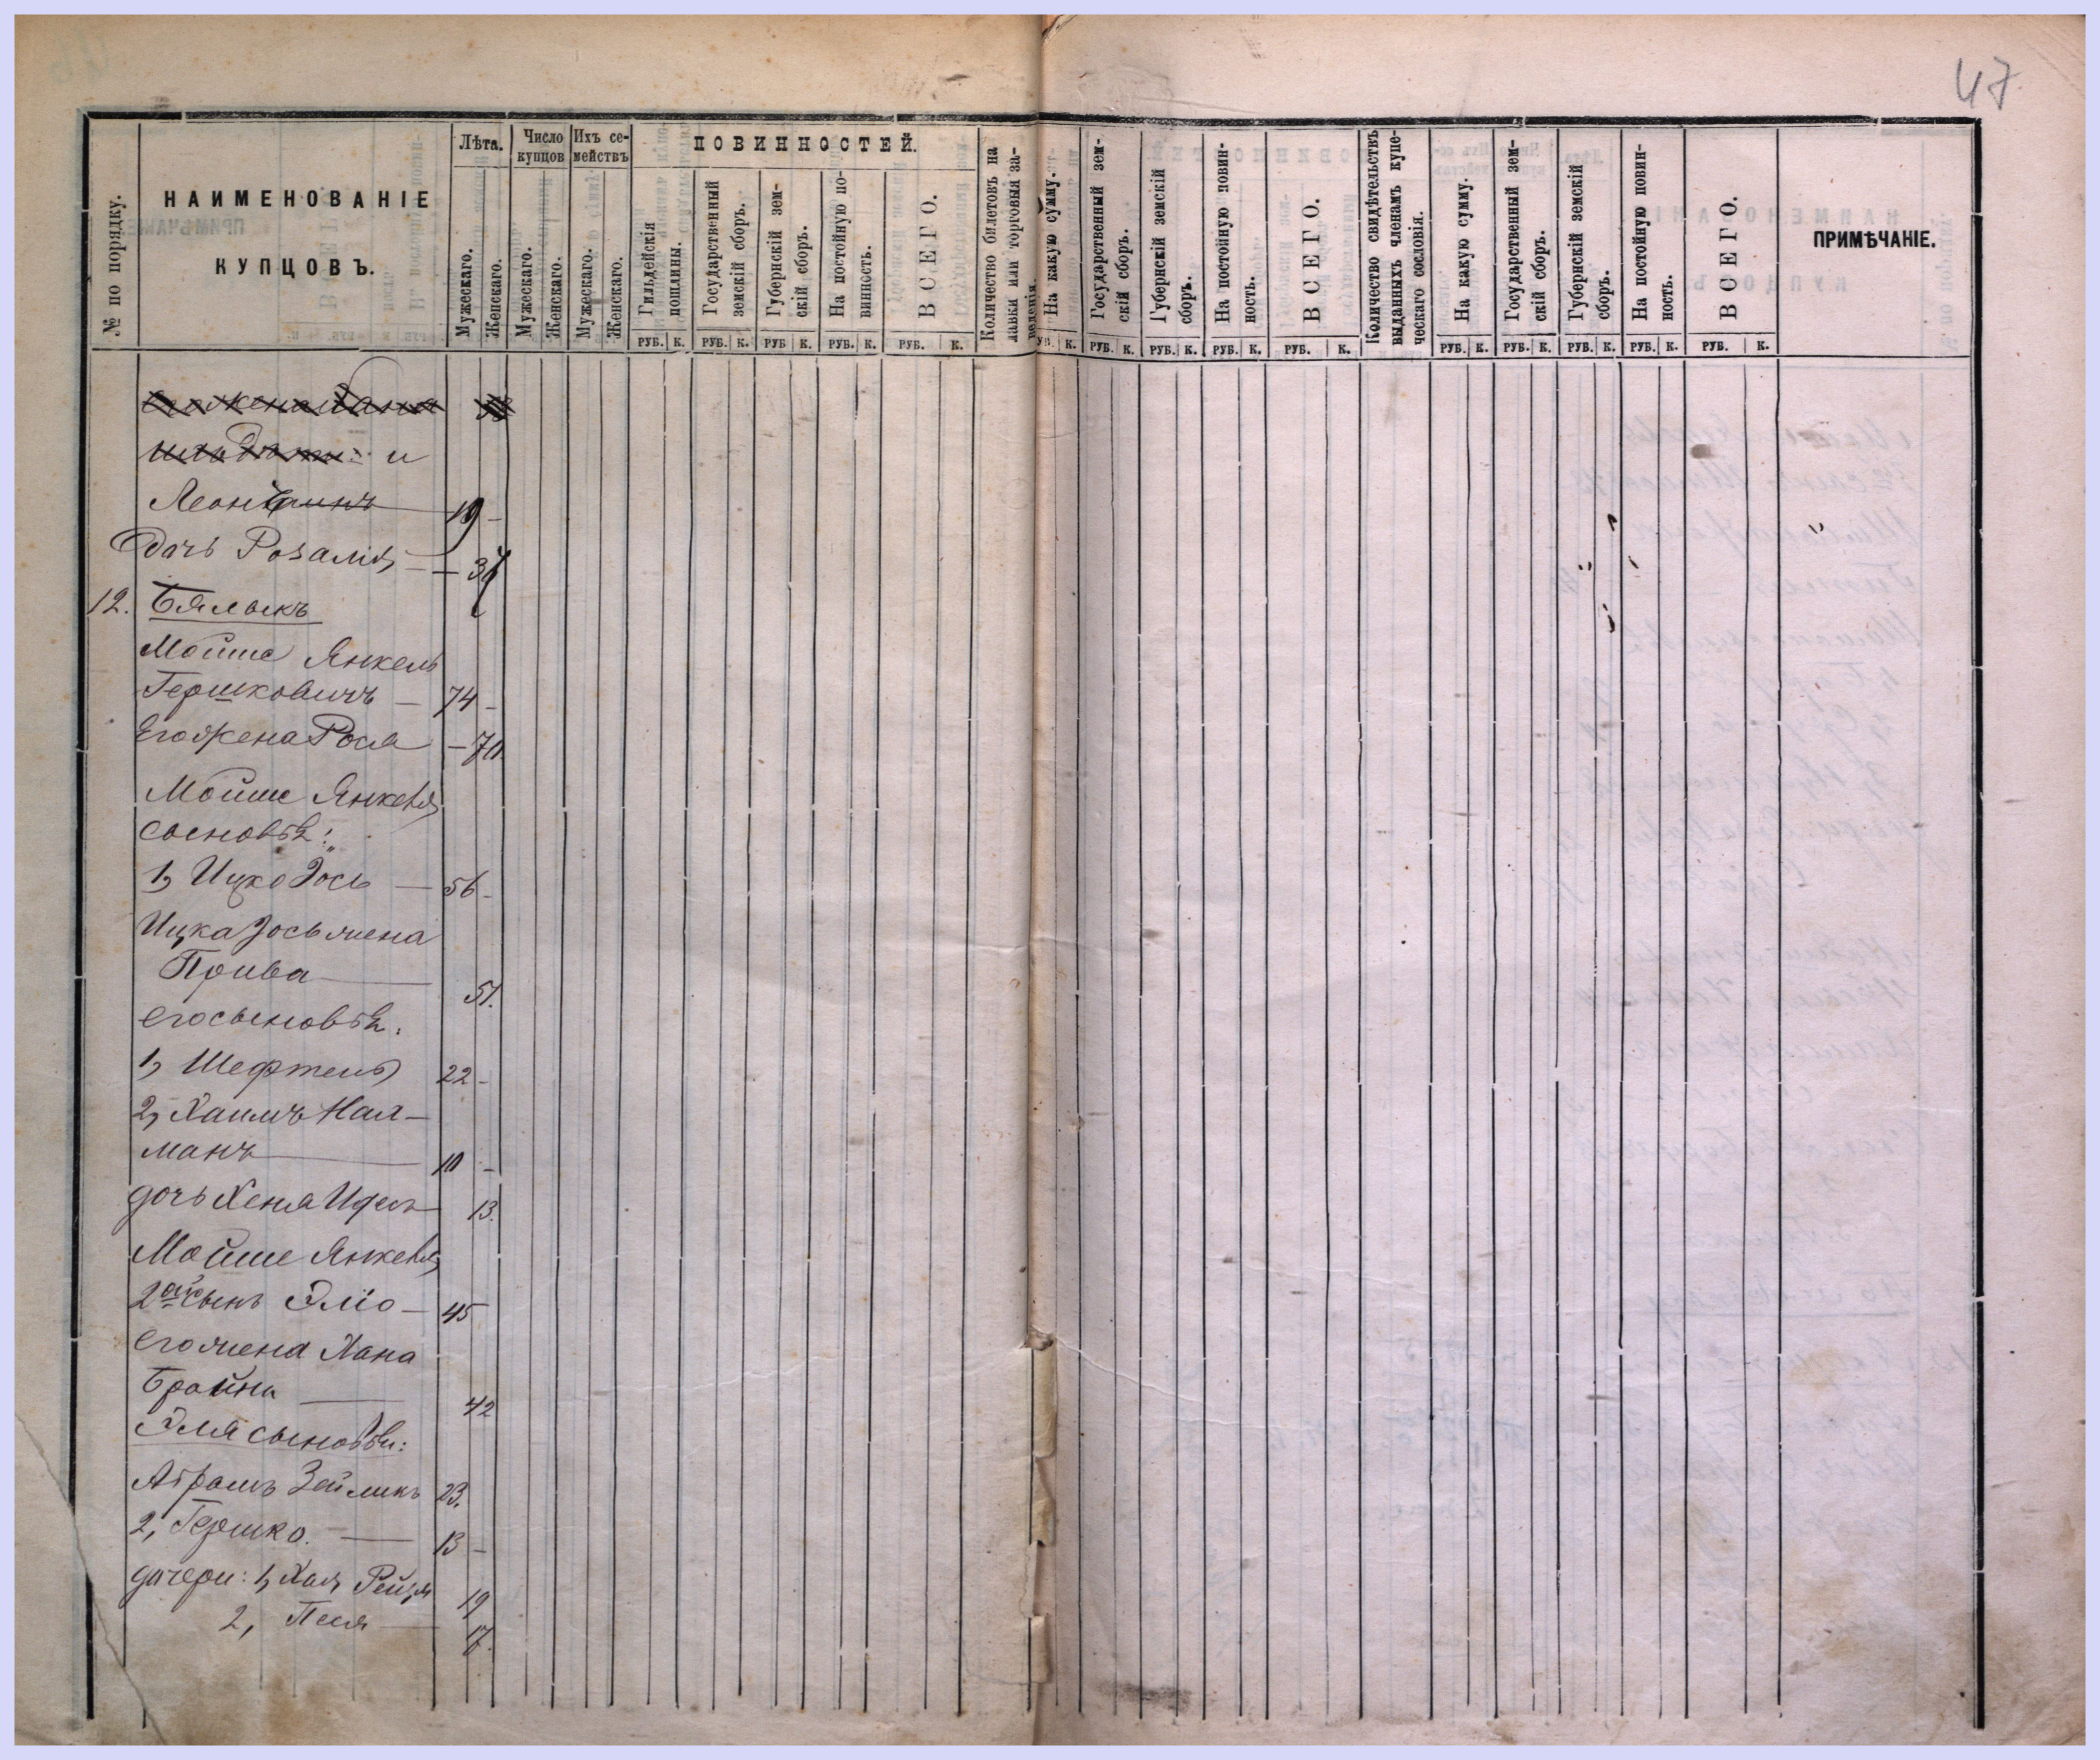 47
№ по порядку.
НАИМЕНОВАНІЕ
КУПЦОВЪ.
Лѣта.
Мужескаго.
Женскаго.
Число
купцов
Мужескаго.
Женскаго.
Ихъ се-
мействъ
Мужескаго.
Женскаго.
ПОВИННОСТЕЙ.
Гильдейскія
пошлины.
Государственный
земскій сборъ.
Губернскій зем-
скій сборъ.
На постойную по-
винность.
ВСЕГО.
Количество билетовъ на
лавки или торговыя за-
веденія.
На какую сумму.
Государственный зем-
скій сборъ.
Губернскій земскій
сборъ.
На постойную повин-
ность.
ВСЕГО.
Количество свидѣтельствъ
выданныхъ членамъ купе-
ческаго сословія.
На какую сумму.
Государственный зем-
скій сборъ.
Губернскій земскій
сборъ.
На постойную повин-
ность.
ВСЕГО.
ПРИМѢЧАНІЕ.
РУБ. К. РУБ. К. РУБ К. РУБ. К. РУБ. К. УБ. К. РУБ. К. РУБ. К. РУБ. К. РУБ. К. РУБ. К. РУБ. К. РУБ. К. РУБ. К. РУБ. К.
и
19 -
Дочь Розалія -
12. Бялыкъ
Мойше Янкель
Гершковичъ - 74 -
Его жена Рося - 70
Мойше Янкеля
сыновья:
1, Ицко Зось - 56 -
Ицка Зось жена
Прива 51.
его сыновья:
1, Шефтель 22 -
2, Хаимъ Нал-
манъ 10 -
дочь Хеня 13.
Мойше Янкеля
2ой сынъ Эліо - 45
его жена Хана
Брайна 42
Эля сыновья:
Абрамъ Зеймикъ 23.
2, Гершко. 13 -
дочери: 1, Хая Рейзя 19
2, Песя 17.